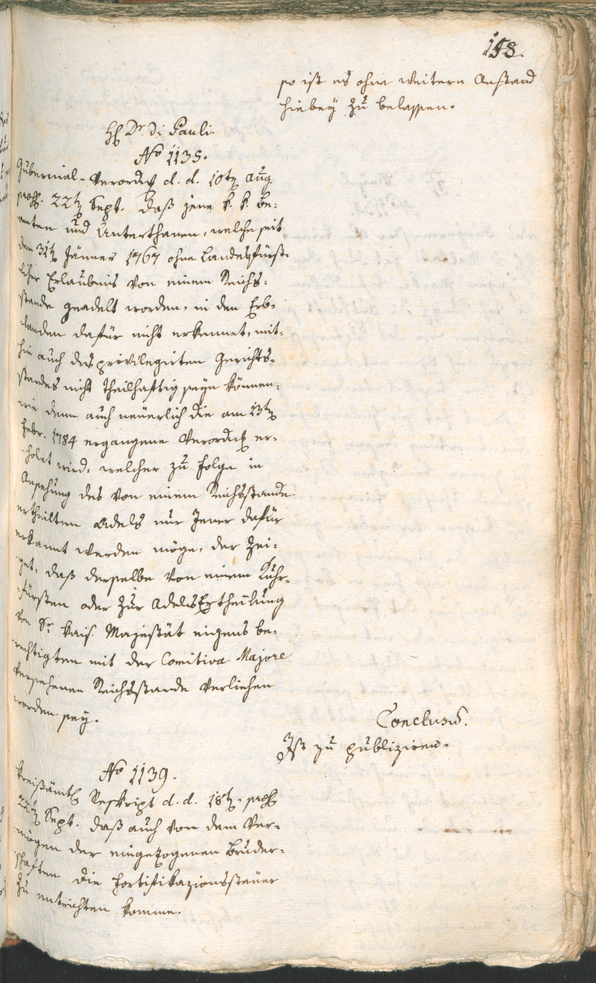 158.
so ist es ohne weitern Anstand
hiebey zu belassen.
H. Dr. di Pauli.
No 1135.
Gubernial-Verordg d. d. 10tn Aug
præs. 22tn Sept. daß jene k. k. Be-
amten und Unterthanen, welche seit
dem 31tn Jänner 1767 ohne Landesfürst-
licher Erlaubnis von einem Reichs-
stande geadelt worden, in den Erb-
landen dafür nicht erkennet, mit-
hin auch des privilegirten Gerichts-
standes nicht theilhaftig seyn können,
wie denn auch neuerlich die am 13tn
Febr. 1784 ergangene Verordng er-
holet wird, welcher zu Folge in
Ansehung des von einem Reichsstande
ertheilten Adels nur Jener dafür
erkannt werden möge, der zei-
get, daß derselbe von einem Kuhr-
fürsten oder zur AdelsErtheilung
von Sr. kais. Majestät eigens be-
rechtigten mit der Comitiva Majore
versehenen Reichsstande verliehen
worden sey.
Conclusum.
Ist zu publiziren.
No 1139.
Kreißämtl Reskript d. d. 18tn præs
22tn Sept. daß auch von dem Ver-
mögen der eingezogenen Bruder-
schaften die Fortifikazionssteuer
zu entrichten komme.